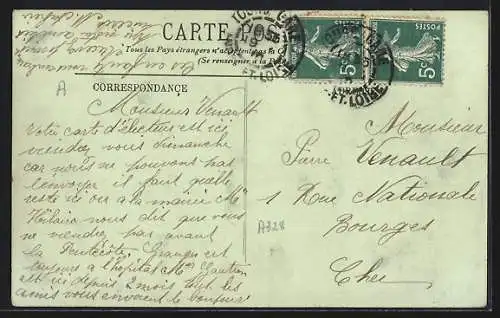 CARTE POSTALE
Tous les Pays étrangers n'acceptent pas la C
(Se renseigner à la
CORRESPONDANCE
A
POSTES
5c
POSTES
5c
Monsieur Venault
Votre carte d'électeur est ici
viendrez vous dimanche
car nous ne pouvons pas
l'envoyer il faut qu'elle
reste ici ou a la mairie Mr
Hilaire nous dit que vous
ne viendrez pas avant
la Pentecôte, est
toujours a l'hôpital Mme
est ici depuis 2 mois, tous les
amis vous envoient le bonjour
Monsieur
Pierre Venault
1 Rue Nationale
Bourges
Cher
A328